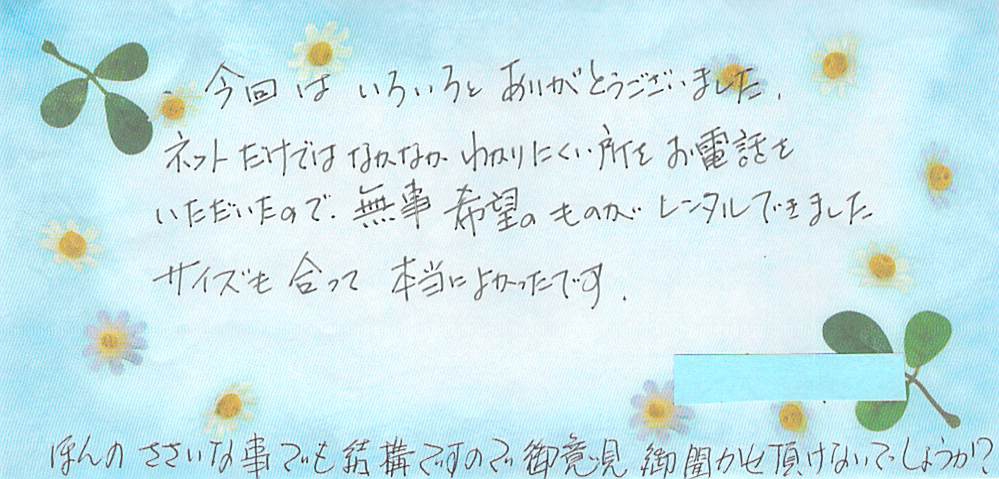 今回は いろいろと ありがとうございました.
ネットだけでは なかなか わかりにくい所を お電話を
いただいたので、無事 希望のものが レンタルできました
サイズも 合って 本当によかったです.
ほんの ささいな事でも結構ですので御意見 御聞かせ頂けないでしょうか?